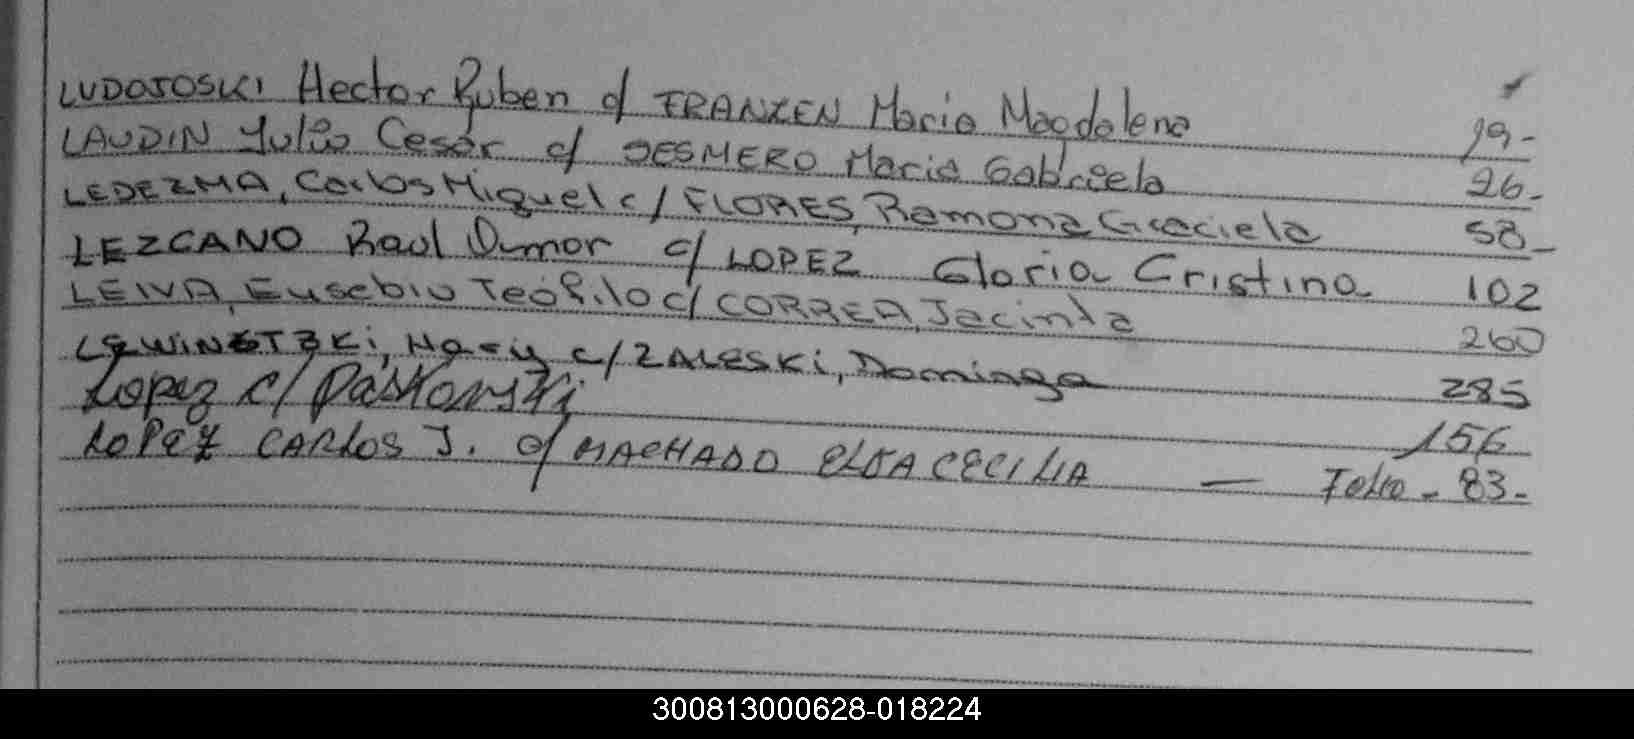 LUDOJOSKI Hector Ruben c/ FRANZEN Maria Magdalena 19-
LAUDIN Julio Cesar c/ DESMERO Maria Gabriela 26-
LEDEZMA, Carlos Miguel c/ FLORES, Ramona Graciela 58-
LEZCANO Raul Dumor c/ LOPEZ Gloria Cristina 102
LEIVA, Eusebio Teófilo c/ CORREA, Jacinta 260
LEWINSTZKi, c/ ZALESKi, Dominga 285
Lopez c/ Paskowski 156
LOPEZ CARLOS J. c/ MACHADO ELSA CECILIA — Folio - 83-
300813000628-018224